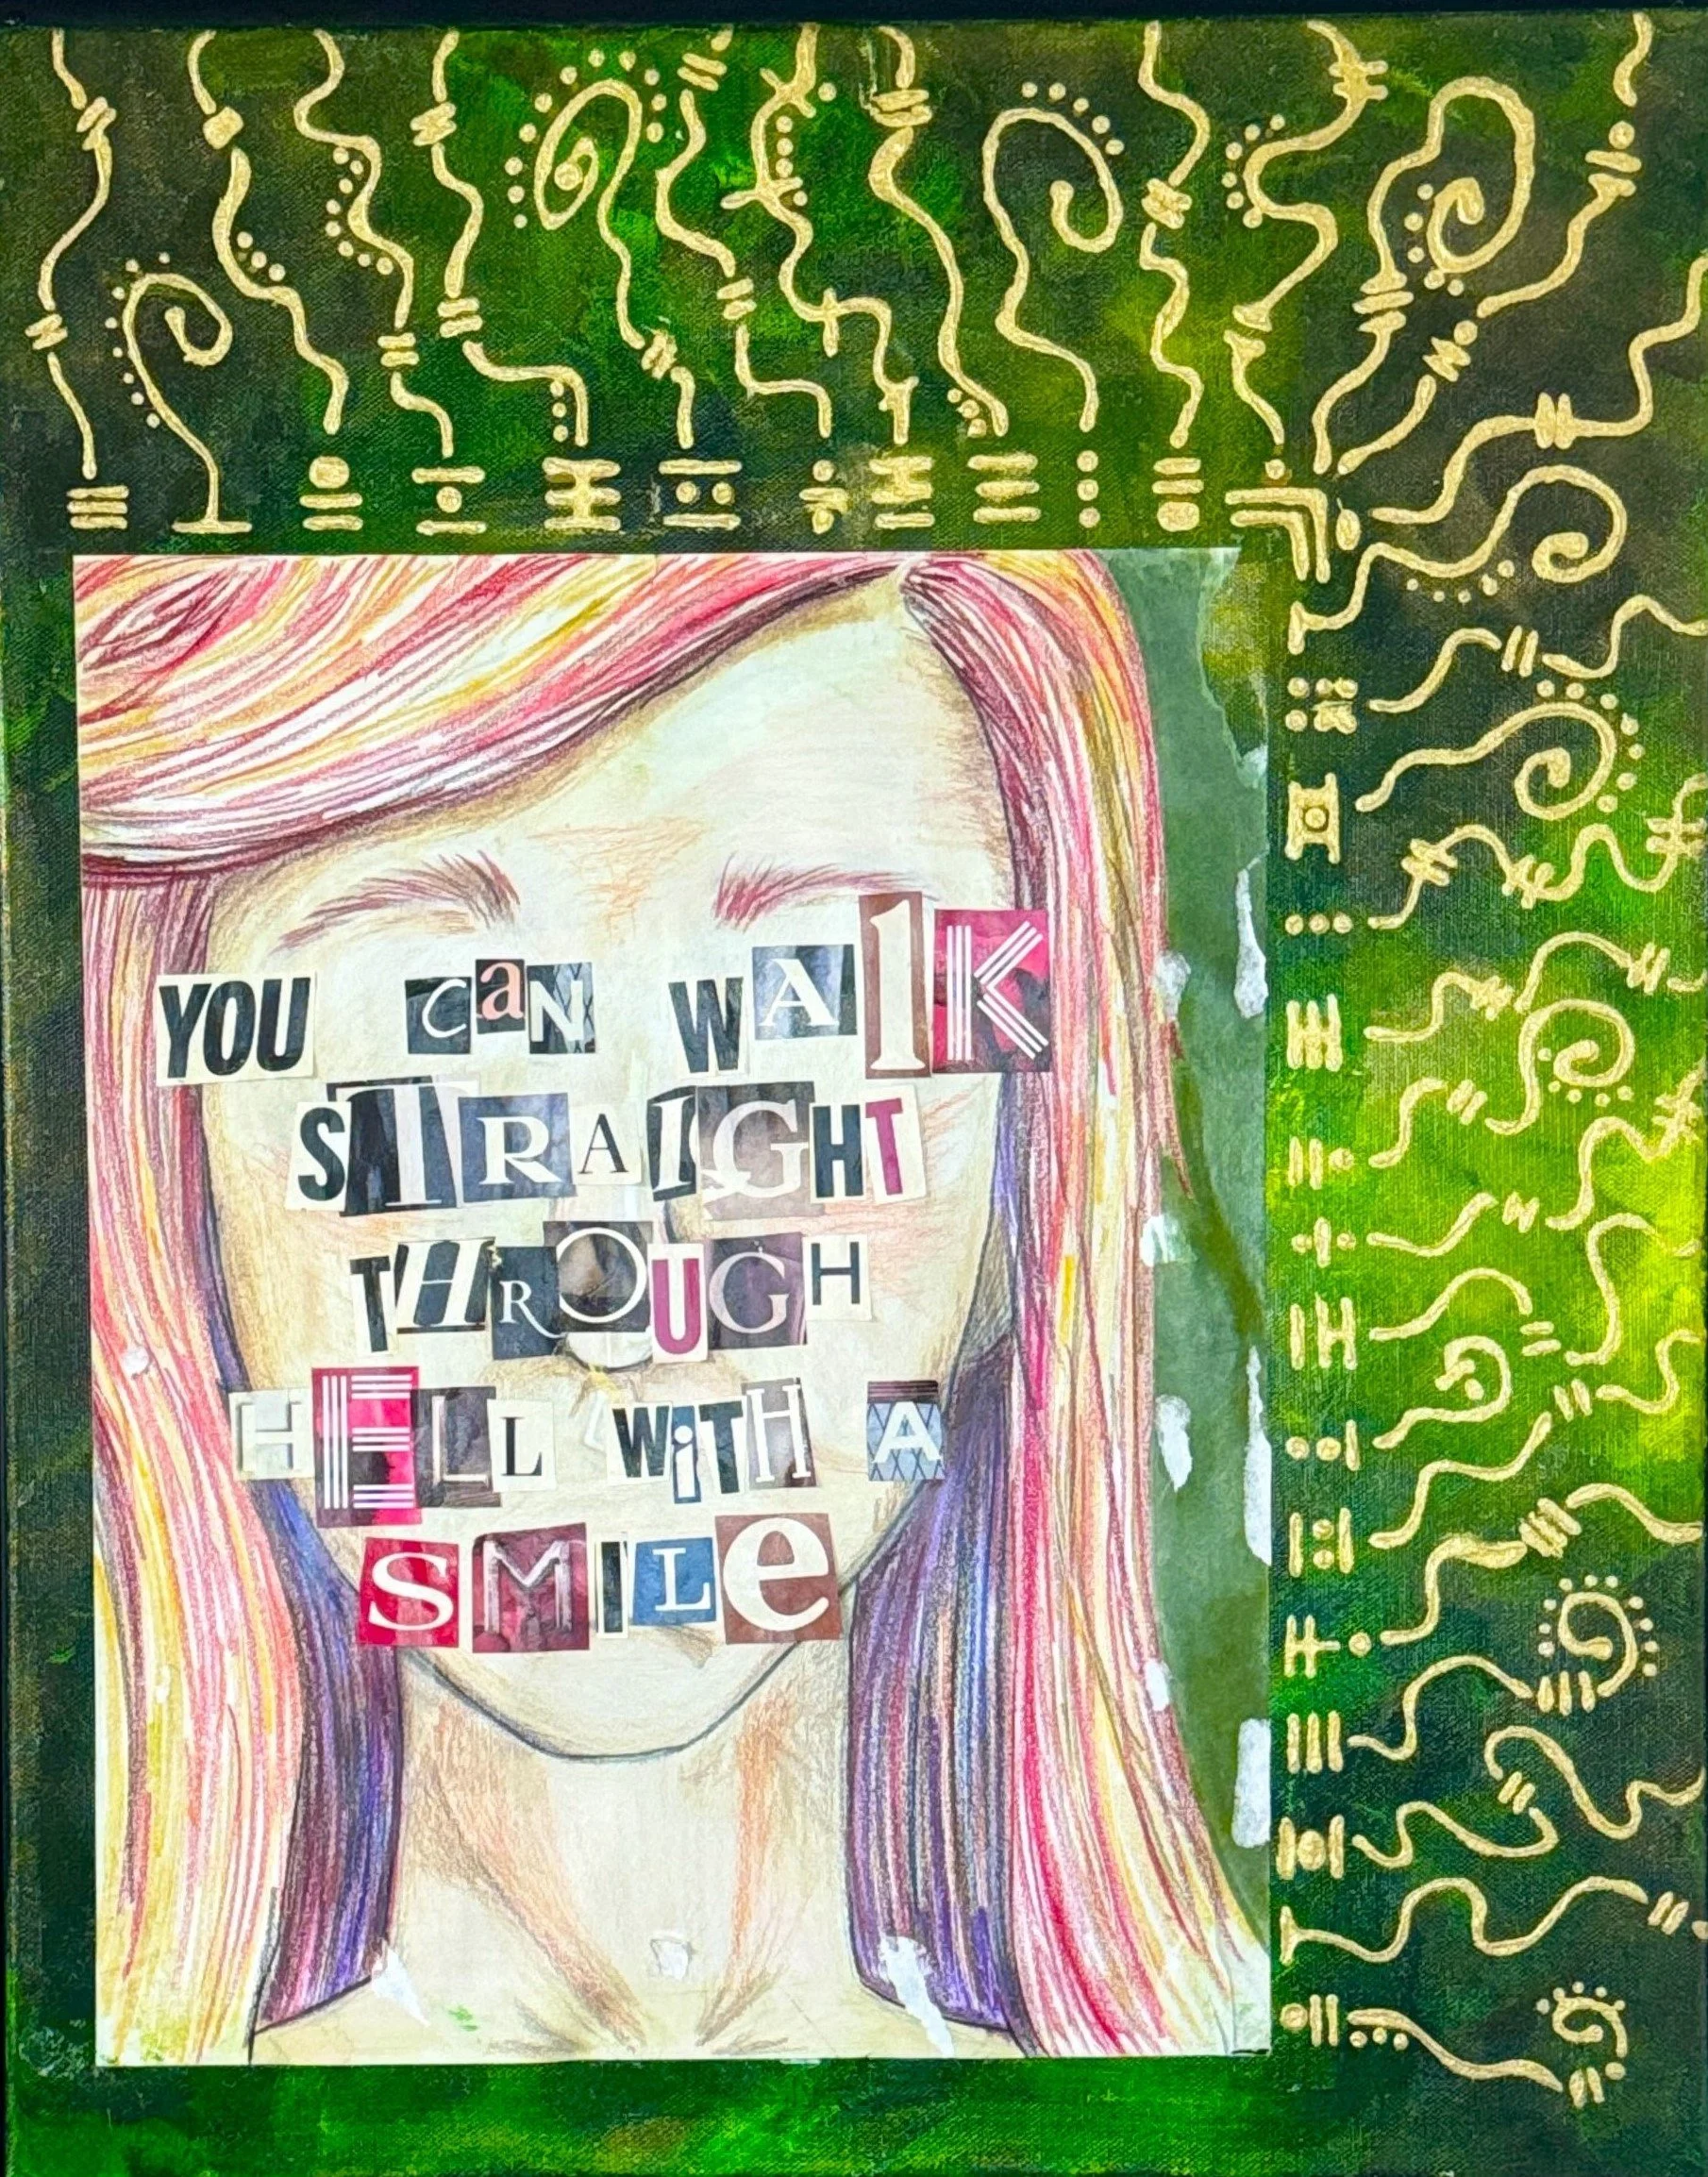 YOU CaN WAlK
STRAIGHT
THROUGH
HELL WiTH A
SMILe